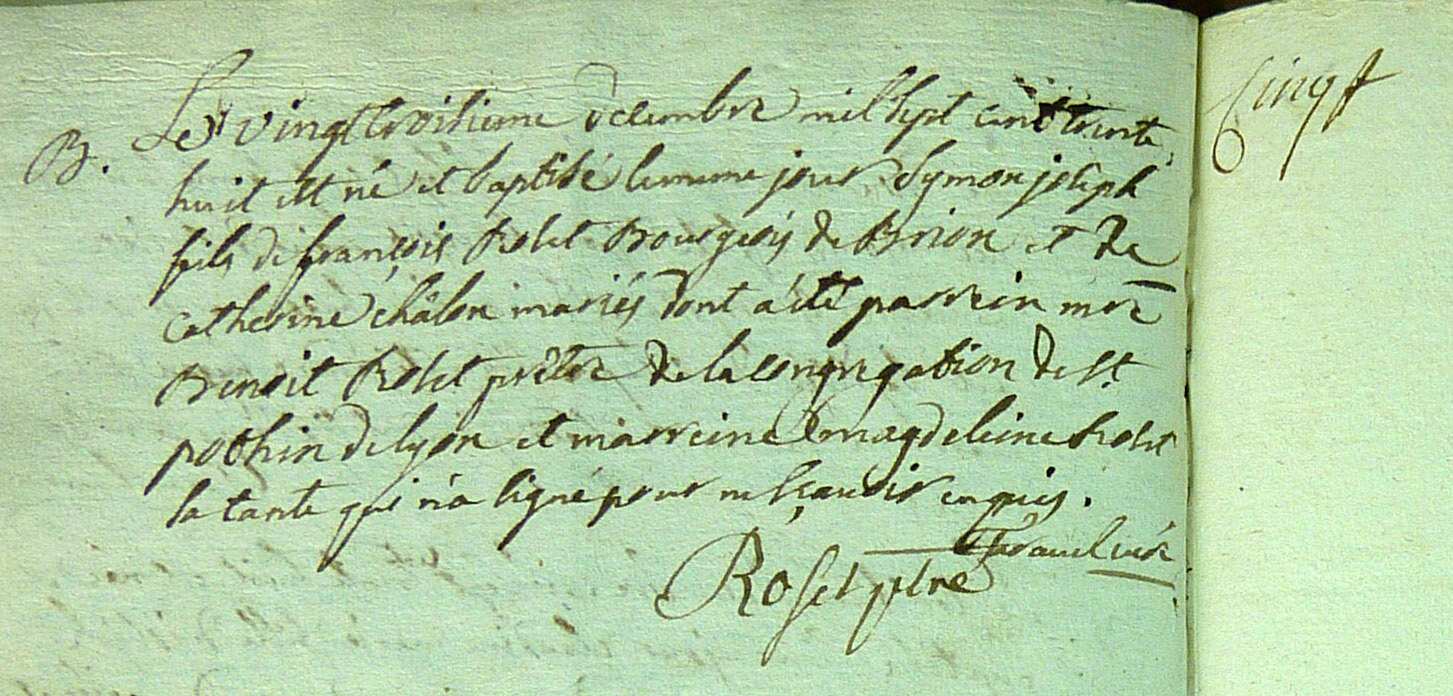 B.
Le vingttroisieme decembre mil sept cent trente
huit est né et baptisé le meme jour Symon joseph
fils de françois Roset Bourgeois de Brion et de
catherine châlon mariés dont a été parrein mre
Benoit Roset prêtre de la congregation de st
pothin de lyon et marreine magdeleine Roset
sa tante qui n'a signé pour ne sçavoir enquis.
Roset ptre
Cinq f